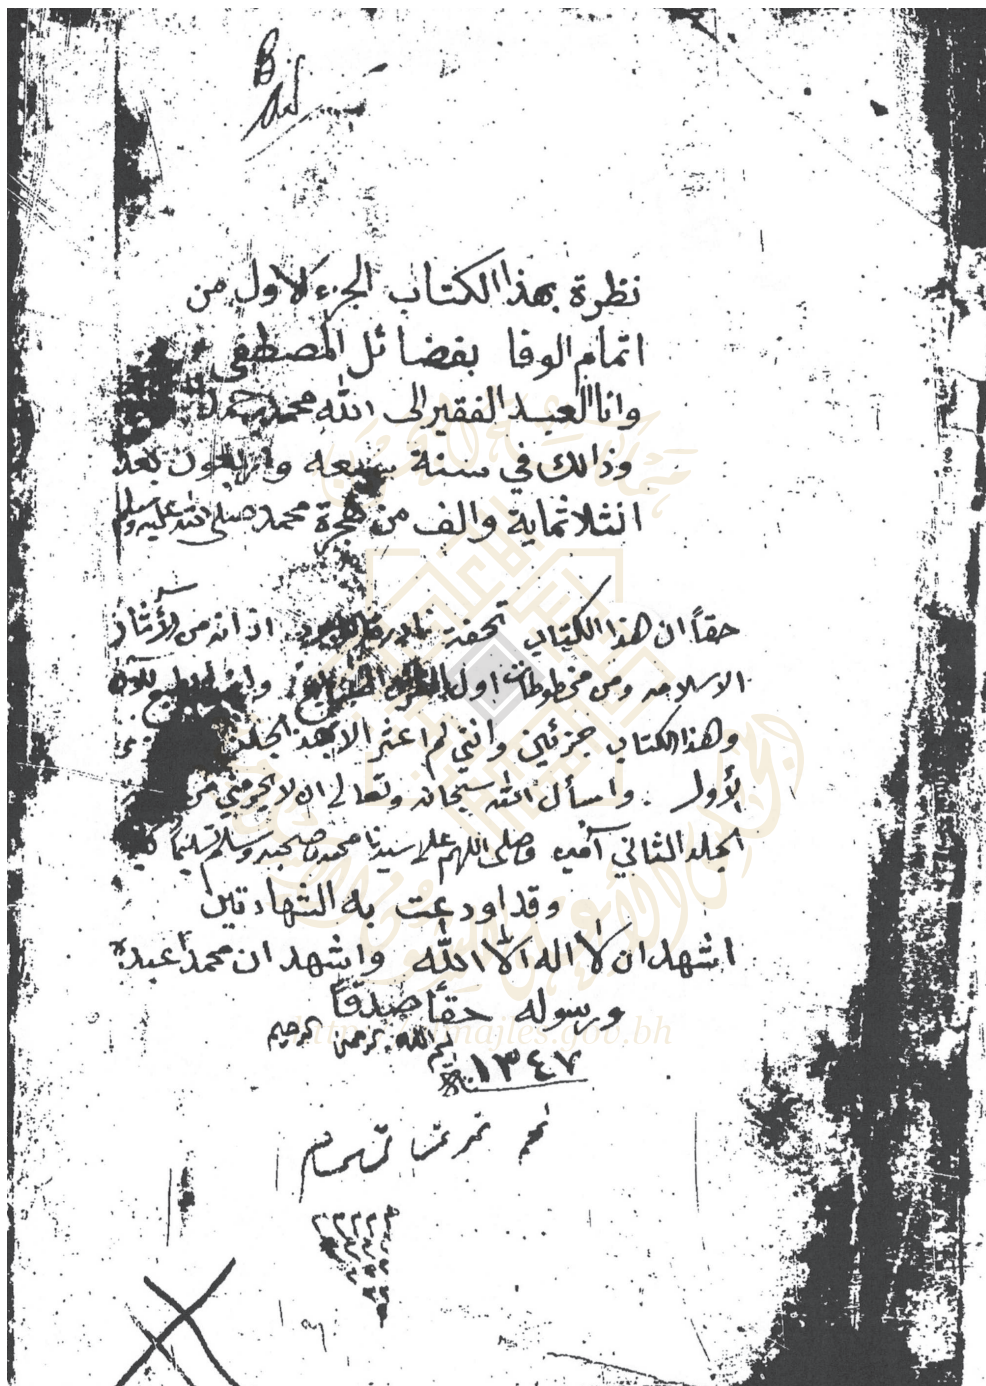 نظرة بهذا الكتاب الجزء الاول من
اتمام الوفا بفضائل المصطفى
وانا العبد الفقير الى الله محمد
وذالك في سنة سبعه واربعون بعد
الثلاثماية والف من هجرة محمد صلى الله عليه وسلم
حقاً ان هذا الكتاب تحفة نادرة اذ انه من الأثار
الاسلاميه ومن مخطوطات اول
وهذا الكتاب جزئين وانني لم اعثر الا بهذا الجلد
الأول . واسأل الله سبحانه وتعالى ان لا يحرمني من
الجلد الثاني آمين وصلى اللهم على سيدنا محمد وصحبه وسلم تسليماً
وقد اودعت به الشهادتين
اشهد ان لا اله الا الله واشهد ان محمداً عبده
ورسوله حقاً صدقاً
بسم الله الرحمن الرحيم
١٣٤٧
https://almajles.gov.bh